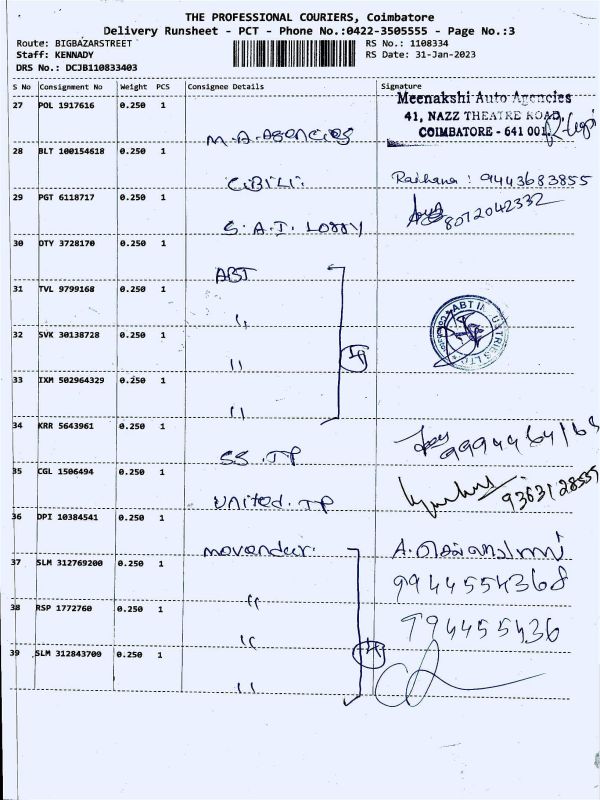 THE PROFESSIONAL COURIERS, Coimbatore
Delivery Runsheet - PCT - Phone No.:0422-3505555 - Page No.:3
Route: BIGBAZARSTREET
RS No.: 1108334
Staff: KENNADY
RS Date: 31-Jan-2023
DRS No.: DCJB110833403
S No Consignment No Weight PCS Consignee Details Signature
27 POL 1917616 0.250 1 M.A.Agencies
Meenakshi Auto Agencies
41, NAZZ THEATRE ROAD,
COIMBATORE - 641 001.
28 BLT 100154618 0.250 1 CIBILI. Raihana : 9443683855
29 PGT 6118717 0.250 1 S.A.I. LORRY 8072042332
30 DTY 3728170 0.250 1 ABT
31 TVL 9799168 0.250 1 "
ABT INDUSTRIES LTD
32 SVK 30138728 0.250 1 "
33 IXM 502964329 0.250 1 "
34 KRR 5643961 0.250 1 SS.TP
35 CGL 1506494 0.250 1 United.TP 9363128555
36 DPI 10384541 0.250 1
37 SLM 312769200 0.250 1 "
9944554368
38 RSP 1772760 0.250 1 "
794455436
39 SLM 312843709 0.250 1 "